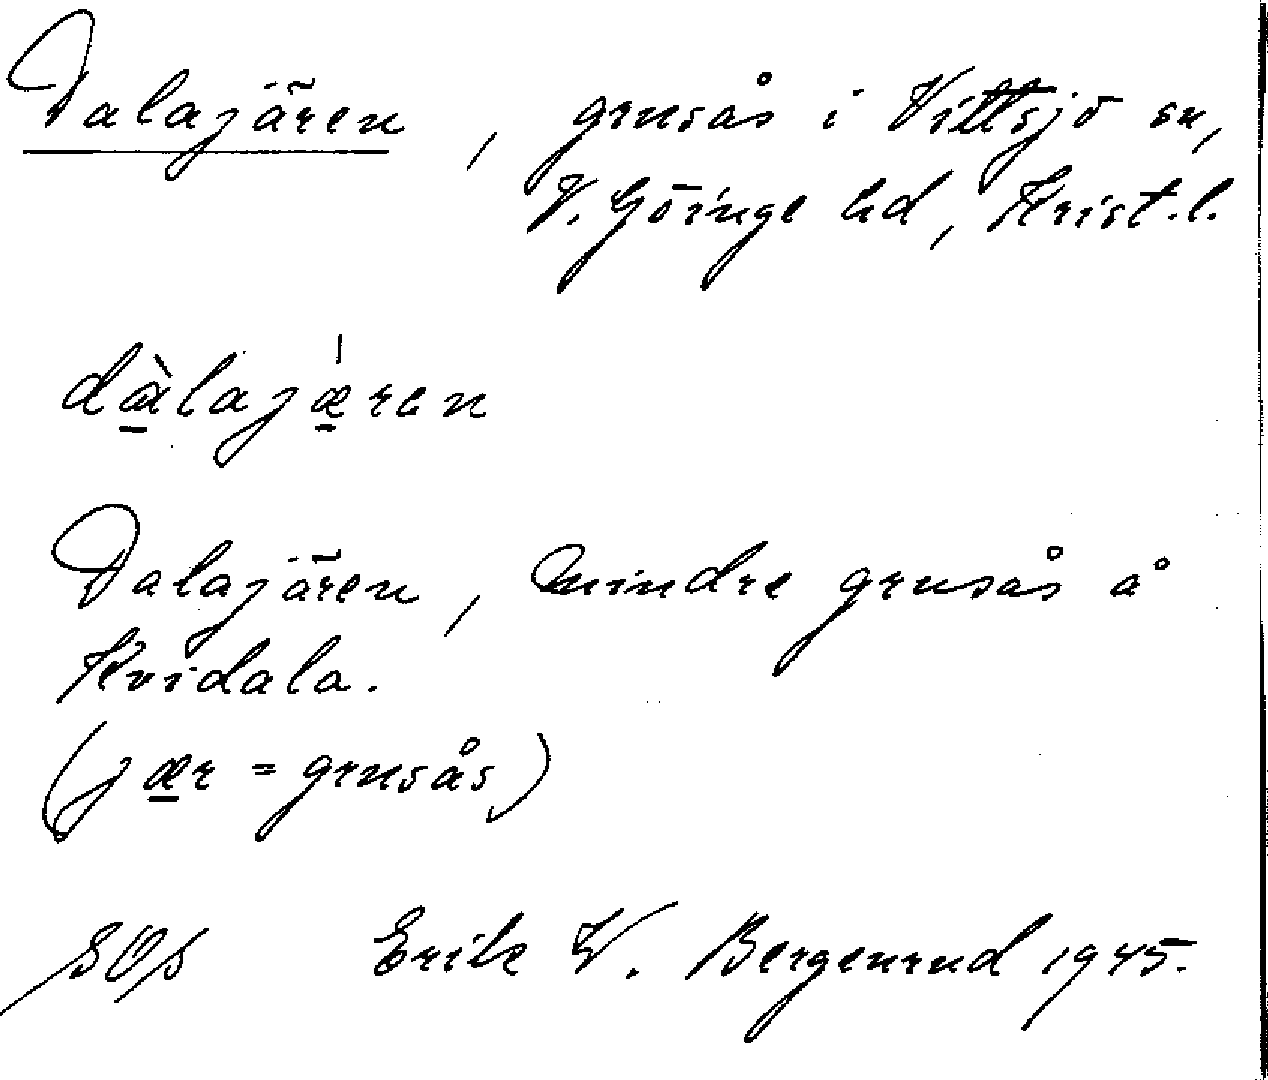 Dalajären, grusås i Vittsjö sn,
V. Göinge hd, Krist. l.
dàlajæ̍ren
Dalajären, mindre grusås å
Kvidala.
(jær = grusås)
Erik W. Bergenrud 1945.